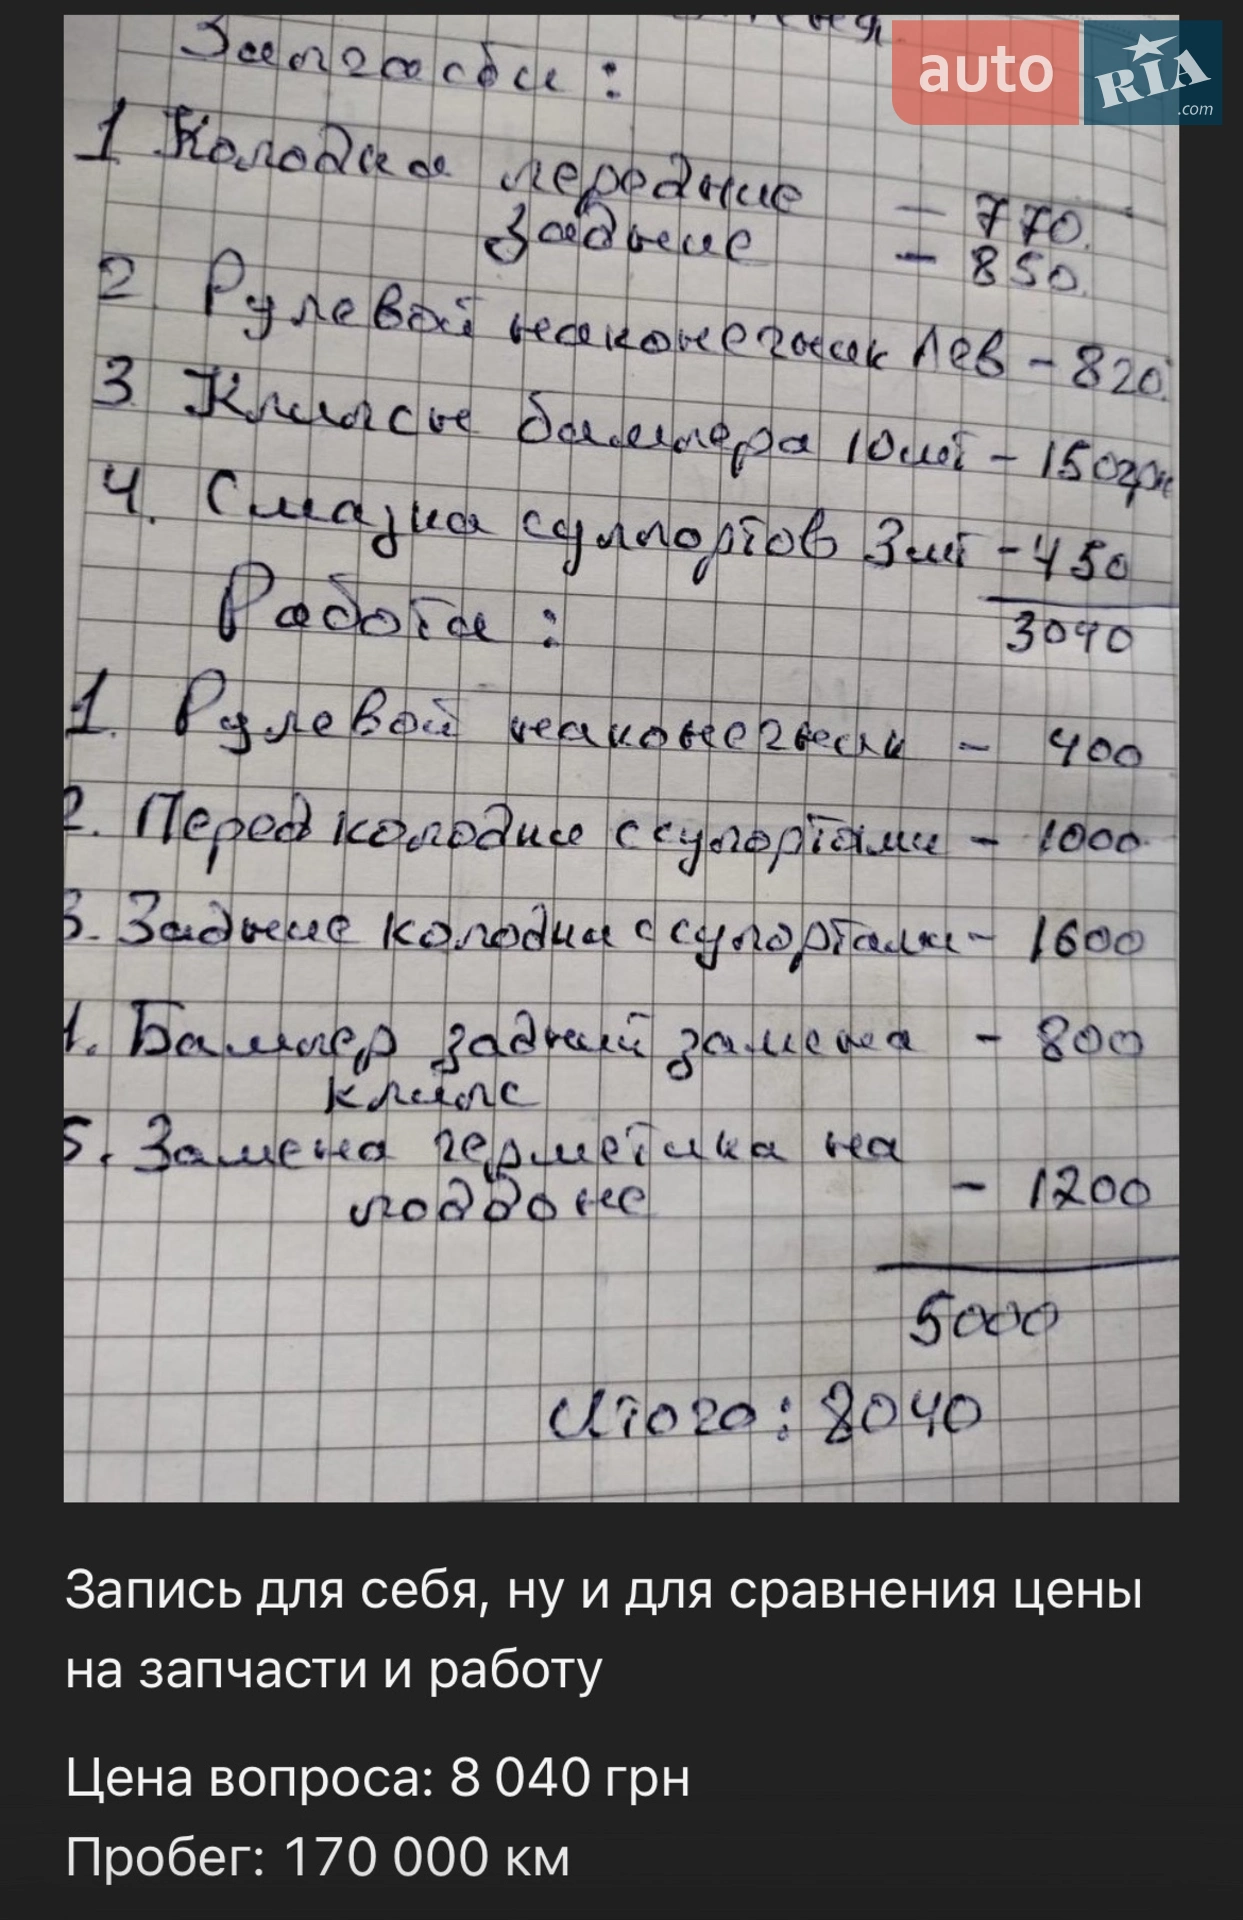 auto RIA .com
Запчасти:
1 Колодки передние - 770.
задние - 850.
2 Рулевой наконечник лев - 820.
3 Клипсы бампера 10шт - 150грн
4. Смазка суппортов 3шт - 450
3040
Работа:
1. Рулевой наконечник - 400
2. Перед колодки с супортами - 1000
3. Задние колодки с супортами - 1600
4. Бампер задний замена - 800
клипс
5. Замена герметика на
поддоне - 1200
5000
Итого: 8040
Запись для себя, ну и для сравнения цены
на запчасти и работу
Цена вопроса: 8 040 грн
Пробег: 170 000 км